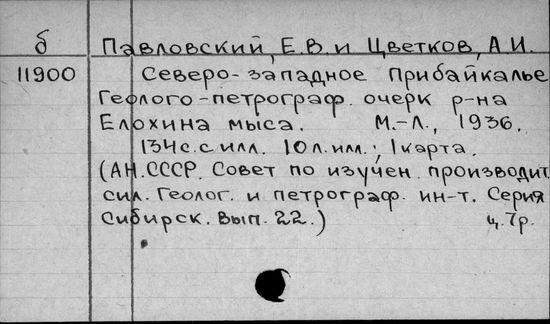 б Павловский, Е.В. и Цветков, А.И.
11900 Северо-западное Прибайкалье
Геолого-петрограф. очерк р-на
Елохина мыса. М.-Л., 1936.
134с. с илл. 10 л. илл.; 1 карта.
(АН. СССР. Совет по изучен. производит.
сил. Геолог. и петрограф. ин-т. Серия
Сибирск. Вып. 22.) ц. 7р.